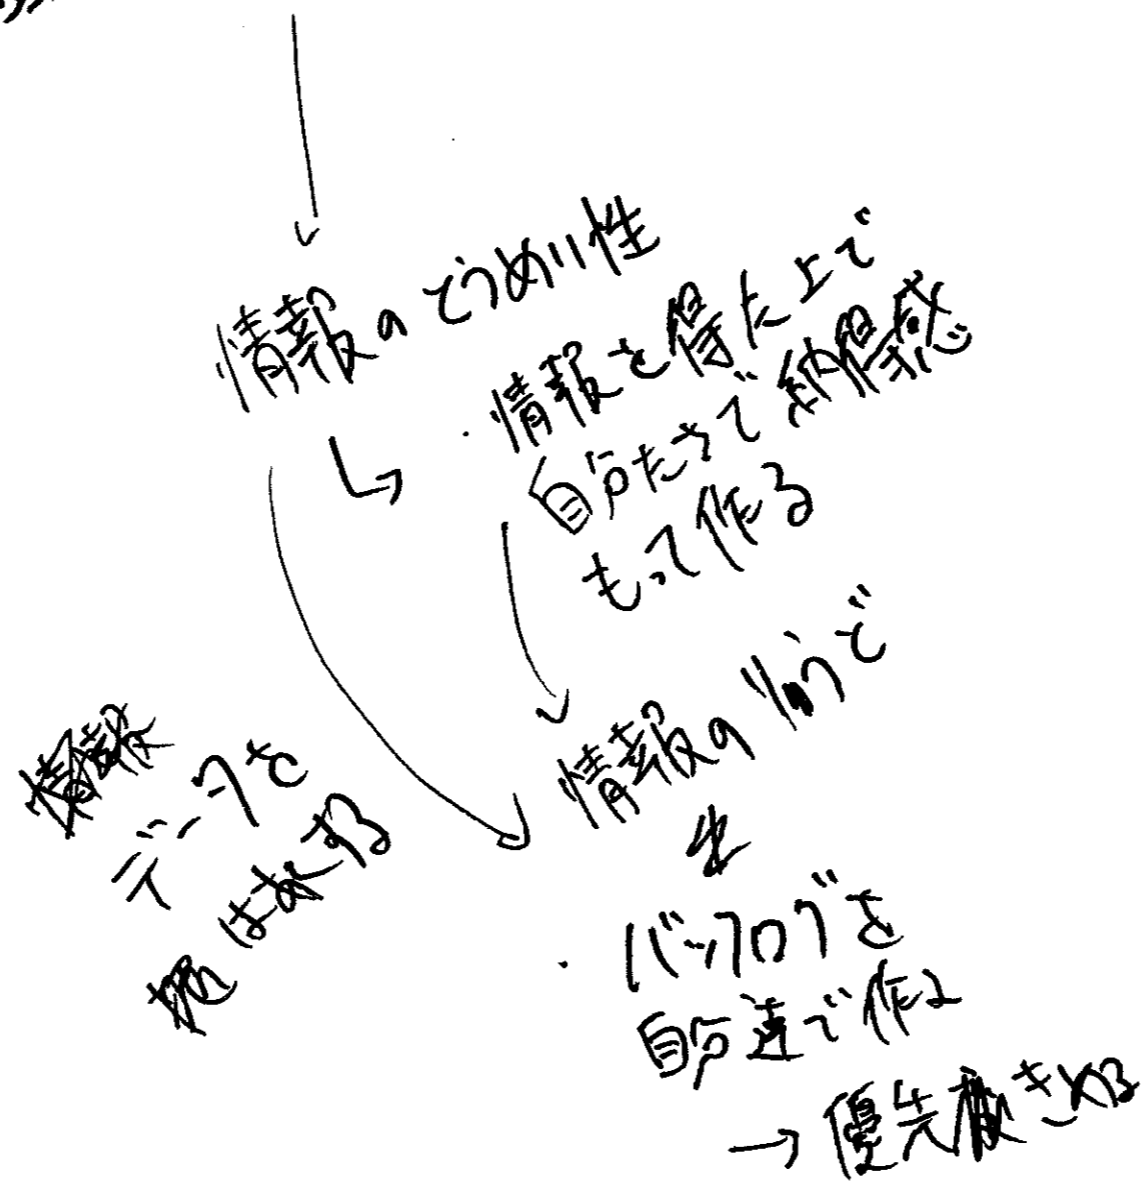 情報のとうめい性
・情報を得た上で
自分たちで納得感
もって作る
情報の
データを
はあくする
・バックログを
自分達で作る
→優先度きめる